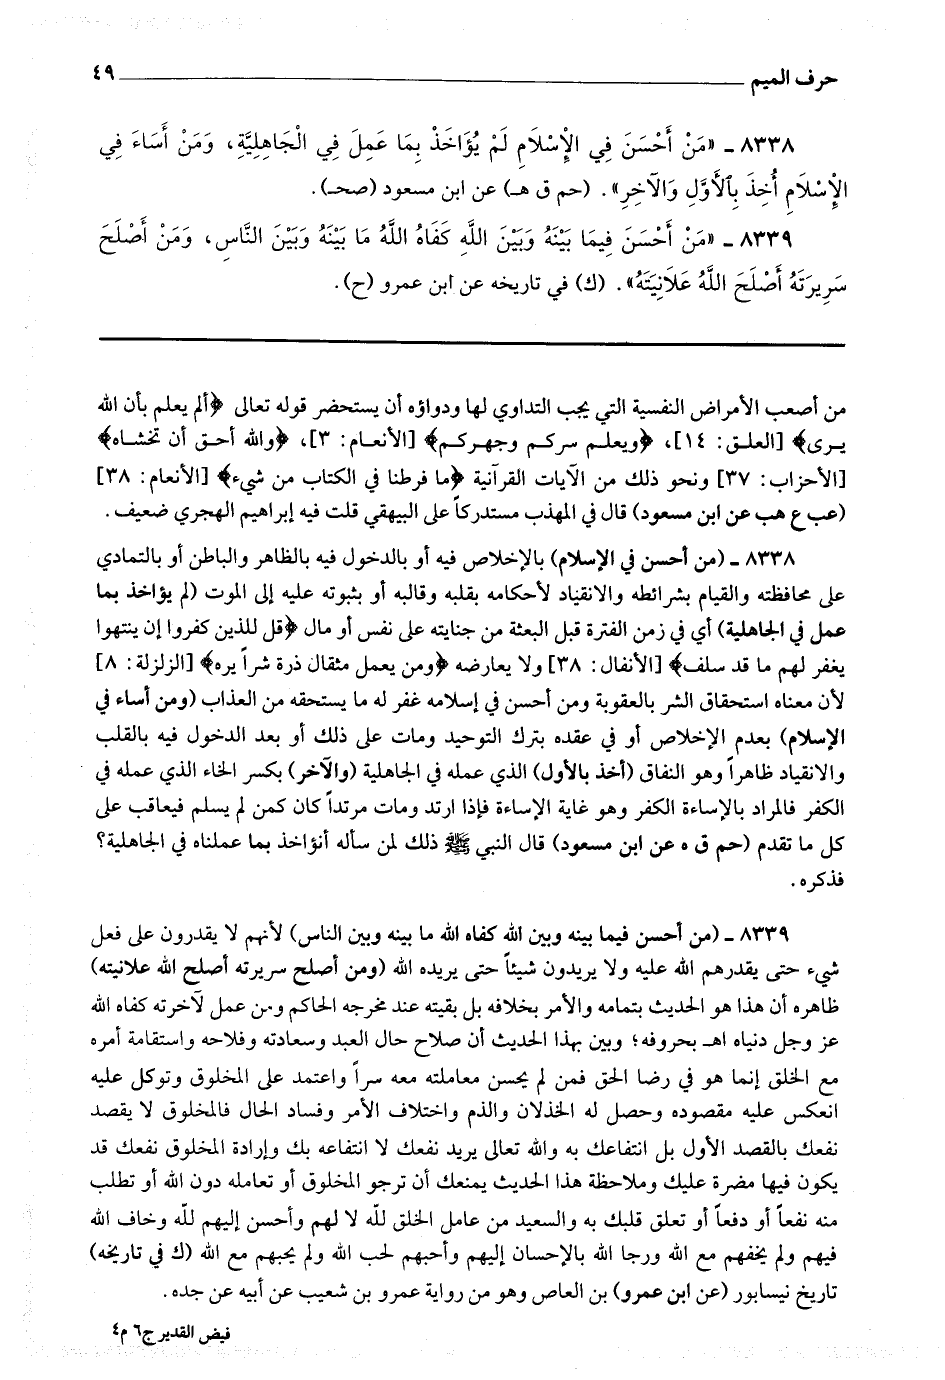 حرف الميم ٤٩
٨٣٣٨ ـ «مَنْ أَحْسَنَ فِي الْإِسْلَامِ لَمْ يُؤَاخَذْ بِمَا عَمِلَ فِي الْجَاهِلِيَّةِ، وَمَنْ أَسَاءَ فِي
الْإِسْلَامِ أُخِذَ بِالْأَوَّلِ وَالْآخِرِ». (حم ق هـ) عن ابن مسعود (صحـ).
٨٣٣٩ ـ «مَنْ أَحْسَنَ فِيمَا بَيْنَهُ وَبَيْنَ اللَّهِ كَفَاهُ اللَّهُ مَا بَيْنَهُ وَبَيْنَ النَّاسِ، وَمَنْ أَصْلَحَ
سَرِيرَتَهُ أَصْلَحَ اللَّهُ عَلَانِيَتَهُ». (ك) في تاريخه عن ابن عمرو (ح).
من أصعب الأمراض النفسية التي يجب التداوي لها ودواؤه أن يستحضر قوله تعالى ﴿ألم يعلم بأن الله
يرى﴾ [العلق: ١٤]، ﴿ويعلم سركم وجهركم﴾ [الأنعام: ٣]، ﴿والله أحق أن تخشاه﴾
[الأحزاب: ٣٧] ونحو ذلك من الآيات القرآنية ﴿ما فرطنا في الكتاب من شيء﴾ [الأنعام: ٣٨]
(عب ع هب عن ابن مسعود) قال في المهذب مستدركاً على البيهقي قلت فيه إبراهيم الهجري ضعيف.
٨٣٣٨ ـ (من أحسن في الإسلام) بالإخلاص فيه أو بالدخول فيه بالظاهر والباطن أو بالتمادي
على محافظته والقيام بشرائطه والانقياد لأحكامه بقلبه وقالبه أو بثبوته عليه إلى الموت (لم يؤاخذ بما
عمل في الجاهلية) أي في زمن الفترة قبل البعثة من جنايته على نفس أو مال ﴿قل للذين كفروا إن ينتهوا
يغفر لهم ما قد سلف﴾ [الأنفال: ٣٨] ولا يعارضه ﴿ومن يعمل مثقال ذرة شراً يره﴾ [الزلزلة: ٨]
لأن معناه استحقاق الشر بالعقوبة ومن أحسن في إسلامه غفر له ما يستحقه من العذاب (ومن أساء في
الإسلام) بعدم الإخلاص أو في عقده بترك التوحيد ومات على ذلك أو بعد الدخول فيه بالقلب
والانقياد ظاهراً وهو النفاق (أخذ بالأول) الذي عمله في الجاهلية (والآخر) بكسر الخاء الذي عمله في
الكفر فالمراد بالإساءة الكفر وهو غاية الإساءة فإذا ارتد ومات مرتداً كان كمن لم يسلم فيعاقب على
كل ما تقدم (حم ق ه عن ابن مسعود) قال النبي ﷺ ذلك لمن سأله أنؤاخذ بما عملناه في الجاهلية؟
فذكره.
٨٣٣٩ ـ (من أحسن فيما بينه وبين الله كفاه الله ما بينه وبين الناس) لأنهم لا يقدرون على فعل
شيء حتى يقدرهم الله عليه ولا يريدون شيئاً حتى يريده الله (ومن أصلح سريرته أصلح الله علانيته)
ظاهره أن هذا هو الحديث بتمامه والأمر بخلافه بل بقيته عند مخرجه الحاكم ومن عمل لآخرته كفاه الله
عز وجل دنياه اهـ بحروفه؛ وبين بهذا الحديث أن صلاح حال العبد وسعادته وفلاحه واستقامة أمره
مع الخلق إنما هو في رضا الحق فمن لم يحسن معاملته معه سراً واعتمد على المخلوق وتوكل عليه
انعكس عليه مقصوده وحصل له الخذلان والذم واختلاف الأمر وفساد الحال فالمخلوق لا يقصد
نفعك بالقصد الأول بل انتفاعك به والله تعالى يريد نفعك لا انتفاعه بك وإرادة المخلوق نفعك قد
يكون فيها مضرة عليك وملاحظة هذا الحديث يمنعك أن ترجو المخلوق أو تعامله دون الله أو تطلب
منه نفعاً أو دفعاً أو تعلق قلبك به والسعيد من عامل الخلق لله لا لهم وأحسن إليهم لله وخاف الله
فيهم ولم يخفهم مع الله ورجا الله بالإحسان إليهم وأحبهم لحب الله ولم يحبهم مع الله (ك في تاريخه)
تاريخ نيسابور (عن ابن عمرو) بن العاص وهو من رواية عمرو بن شعيب عن أبيه عن جده.
فيض القدير ج٦ م٤